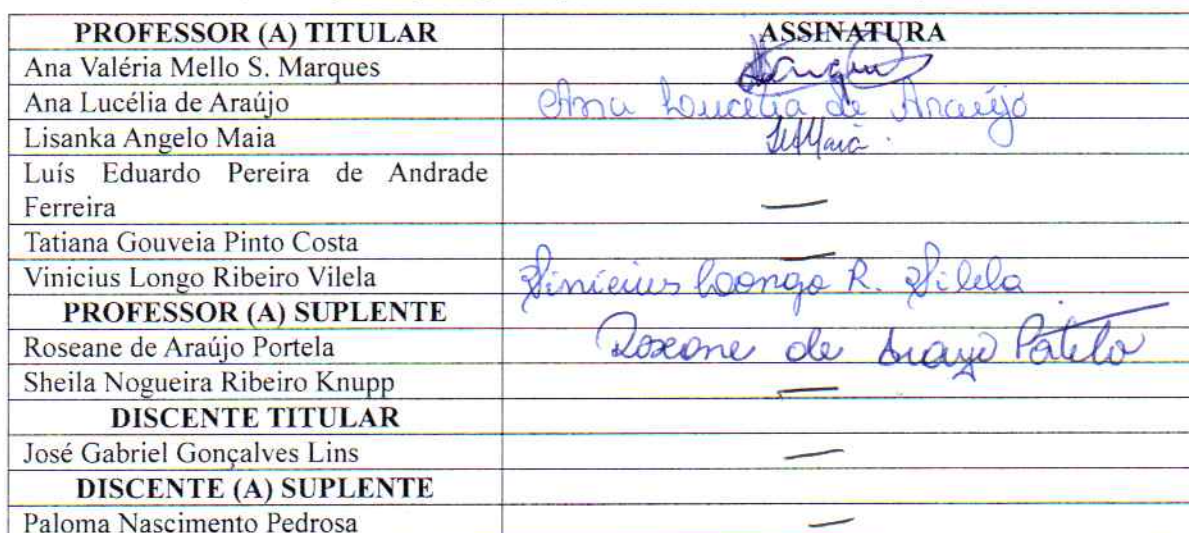 PROFESSOR (A) TITULAR ASSINATURA
Ana Valéria Mello S. Marques
Ana Lucélia de Araújo Ana Lucélia de Araújo
Lisanka Angelo Maia
Luís Eduardo Pereira de Andrade
Ferreira —
Tatiana Gouveia Pinto Costa —
Vinicius Longo Ribeiro Vilela Vinicius Longo R. Vilela
PROFESSOR (A) SUPLENTE
Roseane de Araújo Portela Roseane de Araujo Portela
Sheila Nogueira Ribeiro Knupp —
DISCENTE TITULAR
José Gabriel Gonçalves Lins —
DISCENTE (A) SUPLENTE
Paloma Nascimento Pedrosa —